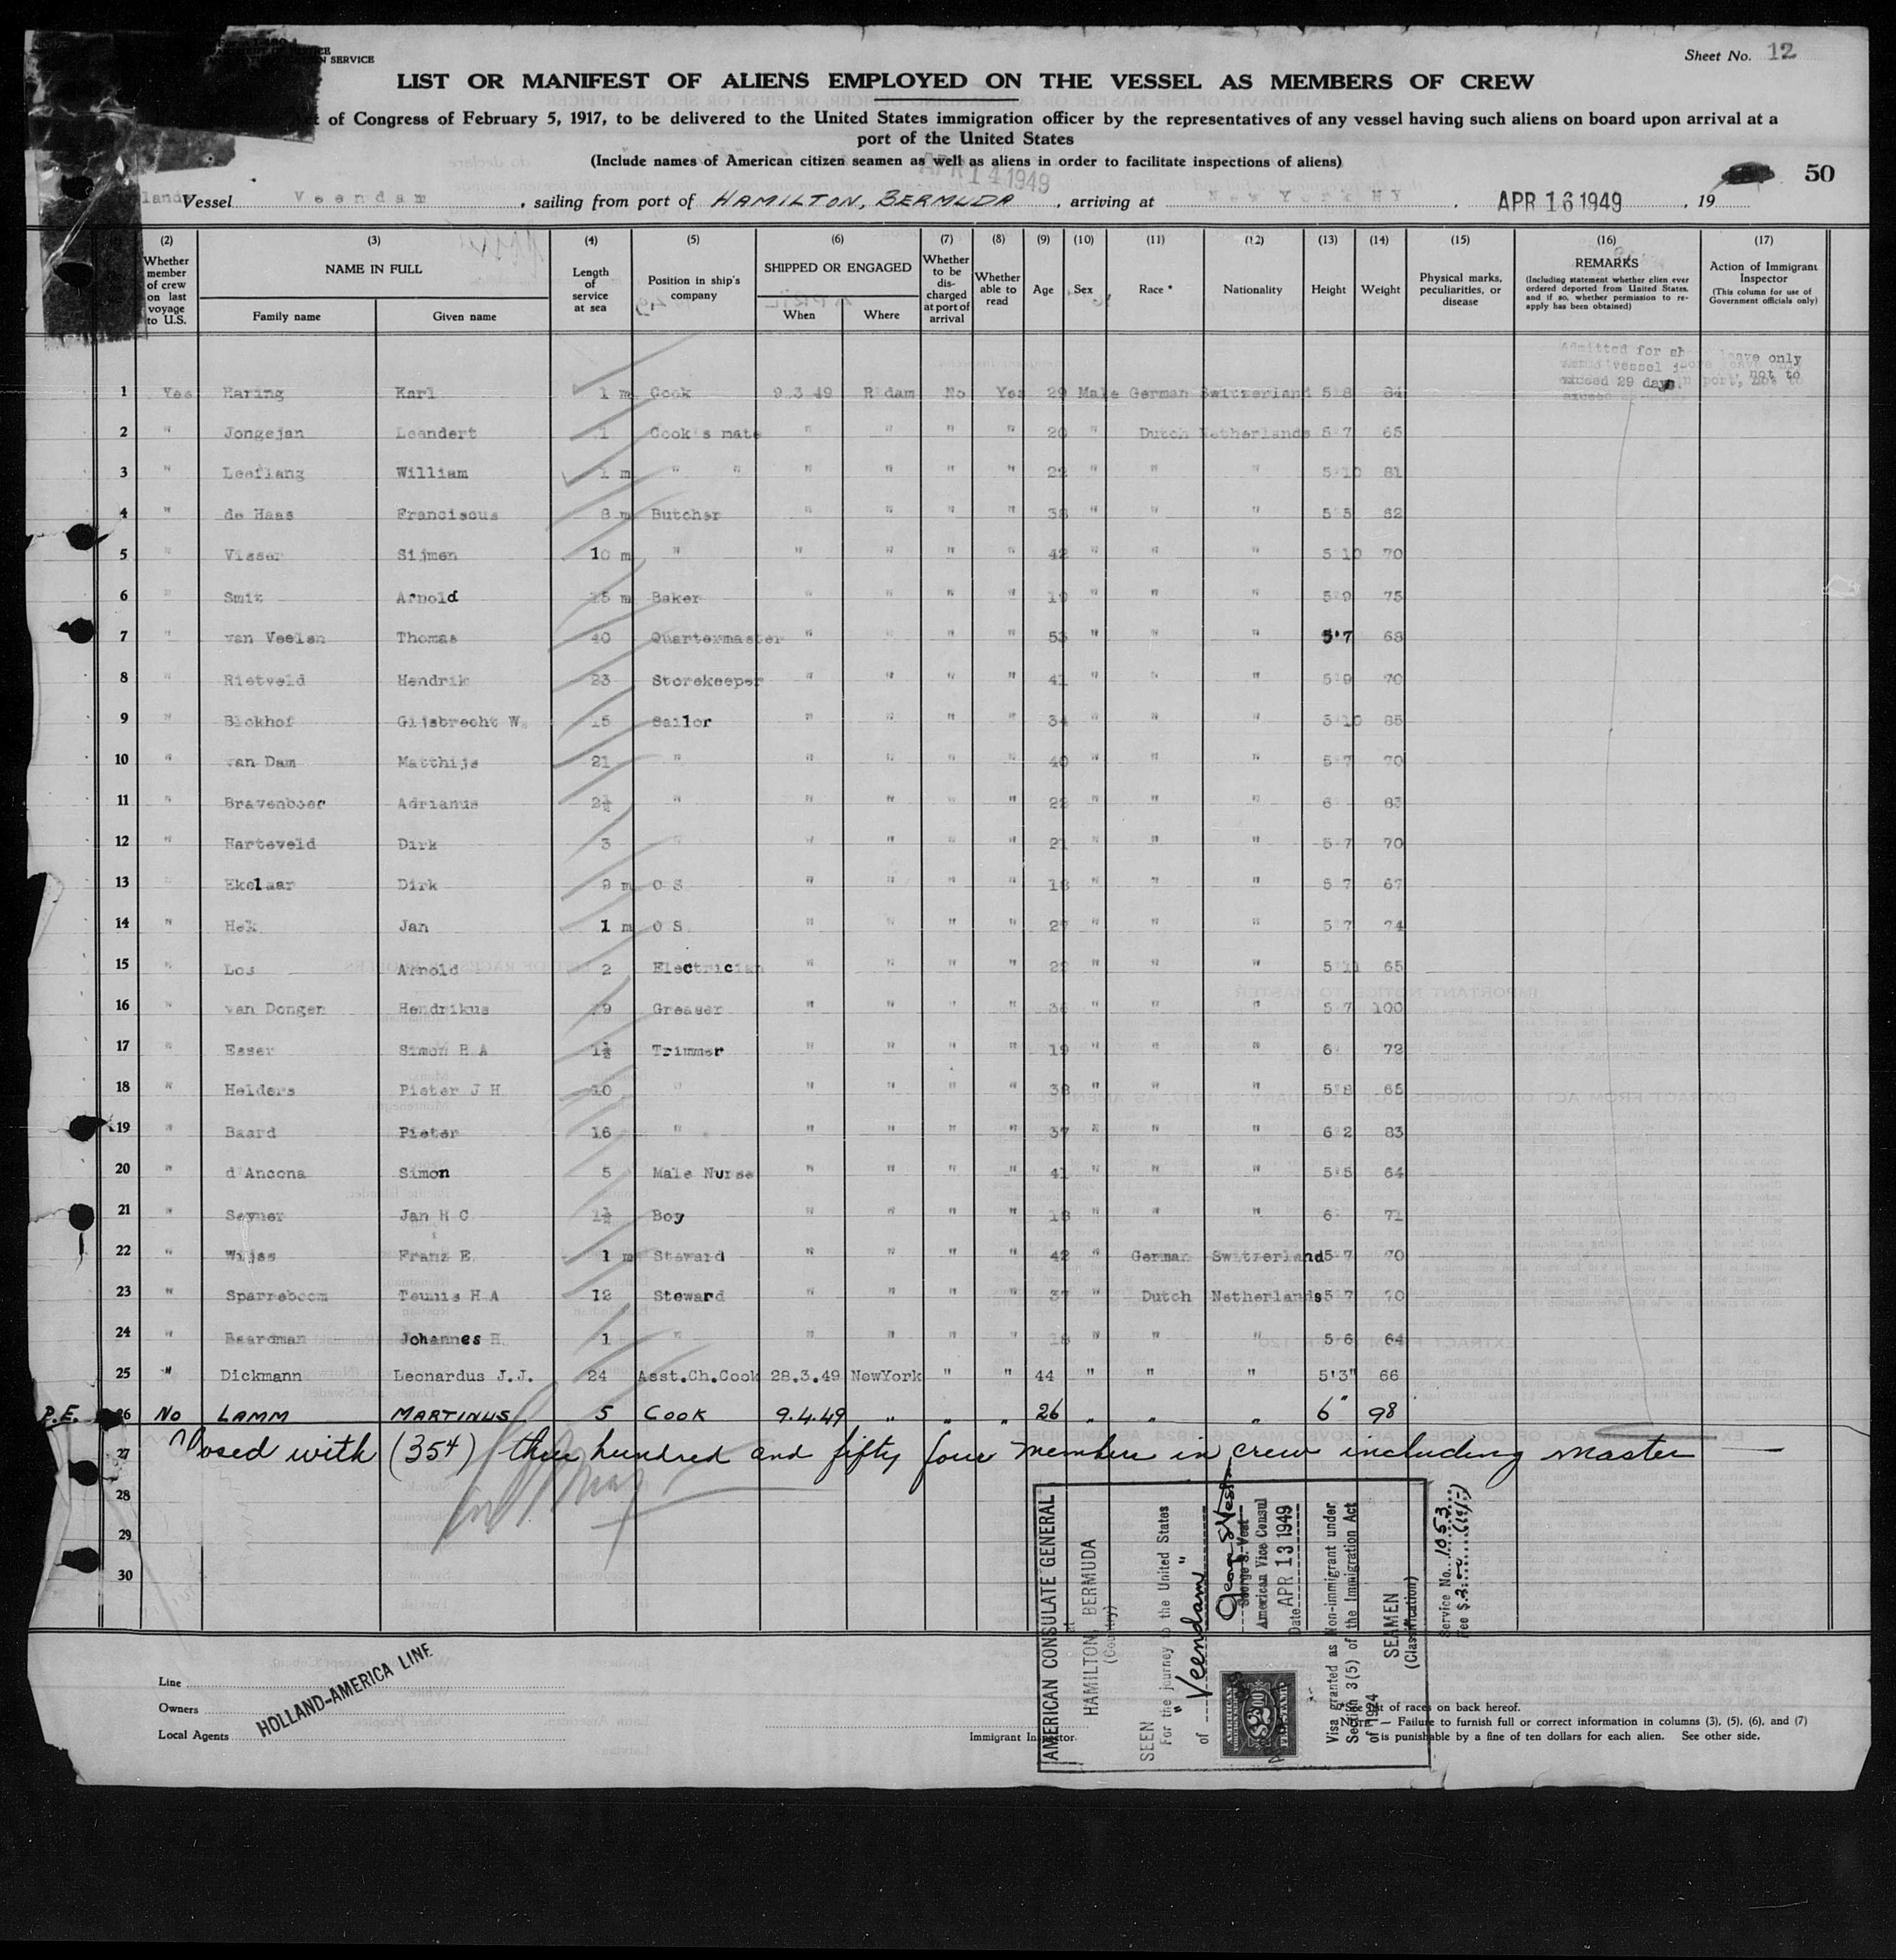 SERVICE
Sheet No. 12
LIST OR MANIFEST OF ALIENS EMPLOYED ON THE VESSEL AS MEMBERS OF CREW
of Congress of February 5, 1917, to be delivered to the United States immigration officer by the representatives of any vessel having such aliens on board upon arrival at a
port of the United States
(Include names of American citizen seamen as well as aliens in order to facilitate inspections of aliens)
APR 14 1949
50
Vessel Veendam, sailing from port of HAMILTON, BERMUDA, arriving at New York NY, APR 16 1949, 19
(2) (3) (4) (5) (6) (7) (8) (9) (10) (11) (12) (13) (14) (15) (16) (17)
Whether member of crew on last voyage to U.S. NAME IN FULL Family name Given name Length of service at sea Position in ship's company SHIPPED OR ENGAGED When Where Whether to be discharged at port of arrival Whether able to read Age Sex Race * Nationality Height Weight Physical marks, peculiarities, or disease REMARKS (Including statement whether alien ever ordered deported from United States, and if so, whether permission to reapply has been obtained) Action of Immigrant Inspector (This column for use of Government officials only)
Admitted for leave only
vessel not to
exceed 29 days.
1 Yes Haring Karl 1 m Cook 9 3 49 R'dam No Yes 29 Male German Switzerland 5 8 84
2 " Jongejan Leendert 1 Cook's mate " " " " 20 " Dutch Netherlands 5 7 65
3 " Leeflang William 1 m " " " " " " 22 " " " 5 10 81
4 " de Haas Franciscus 8 m Butcher " " " " 38 " " " 5 5 62
5 " Visser Sijmen 10 m " " " " " 42 " " " 5 10 70
6 " Smit Arnold 15 m Baker " " " " 19 " " " 5 9 75
7 " van Veelen Thomas 40 Quartermaster " " " " 53 " " " 5'7 68
8 " Rietveld Hendrik 23 Storekeeper " " " " 41 " " " 5 9 70
9 " Blokhof Gijsbrecht W. 15 Sailor " " " " 34 " " " 5 10 85
10 " van Dam Matthijs 21 " " " " " 40 " " " 5 7 70
11 " Bravenboer Adrianus 2½ " " " " " 22 " " " 6 83
12 " Harteveld Dirk 3 " " " " " 21 " " " 5 7 70
13 " Ekelaar Dirk 9 m O S " " " " 18 " " " 5 7 67
14 " Hek Jan 1 m O S " " " " 27 " " " 5 7 74
15 " Los Arnold 2 Electrician " " " " 29 " " " 5 11 65
16 " van Dongen Hendrikus 19 Greaser " " " " 36 " " " 5 7 100
17 " Esser Simon H A 1½ Trimmer " " " " 19 " " " 6 72
18 " Helders Pieter J H 10 " " " " " 38 " " " 5 8 65
19 " Baard Pieter 16 " " " " " 37 " " " 6 2 83
20 " d'Ancona Simon 5 Male Nurse " " " " 41 " " " 5'5 64
21 " Seyner Jan H C 1½ Boy " " " " 18 " " " 6 71
22 " Wijss Franz E. 1 m Steward " " " " 42 " German Switzerland 5 7 70
23 " Sparreboom Teunis H A 12 Steward " " " " 37 " Dutch Netherlands 5 7 70
24 " Baardman Johannes H. 1 " " " " " 18 " " " 5 6 64
25 " Dickmann Leonardus J.J. 24 Asst.Ch.Cook 28.3.49 NewYork " " 44 " " " 5'3" 66
P.E. 26 No LAMM MARTINUS 5 COOK 9.4.49 " " " 26 " " " 6" 98
27 Closed with (354) three hundred and fifty four members in crew including master
28
29
30
AMERICAN CONSULATE GENERAL
at
HAMILTON, BERMUDA
(Country)
SEEN
For the journey to the United States
of "Veendam"
George S. Vest
George S. Vest
American Vice Consul
Date APR 13 1949
Visa granted as Non-immigrant under
Section 3(5) of the Immigration Act
of 1924
SEAMEN
(Classification)
Service No. 1053
Fee $ 2.00 (14/-)
AMERICAN
$2.00
FEE STAMP
Line
Owners
Local Agents
HOLLAND-AMERICA LINE
Immigrant Inspector.
list of races on back hereof.
Note — Failure to furnish full or correct information in columns (3), (5), (6), and (7)
is punishable by a fine of ten dollars for each alien. See other side.